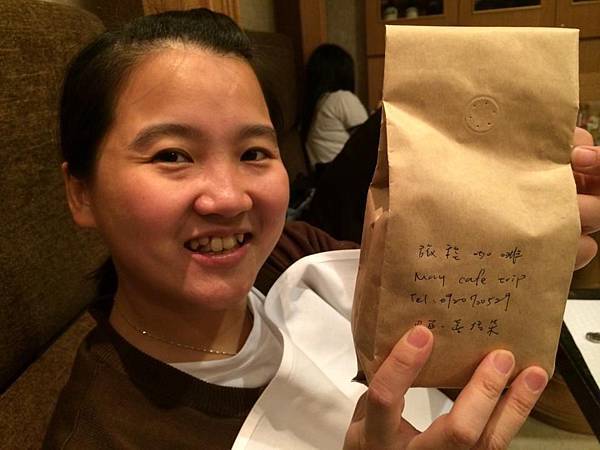 旅程 咖啡
May cafe trip
Tel: 0920720529